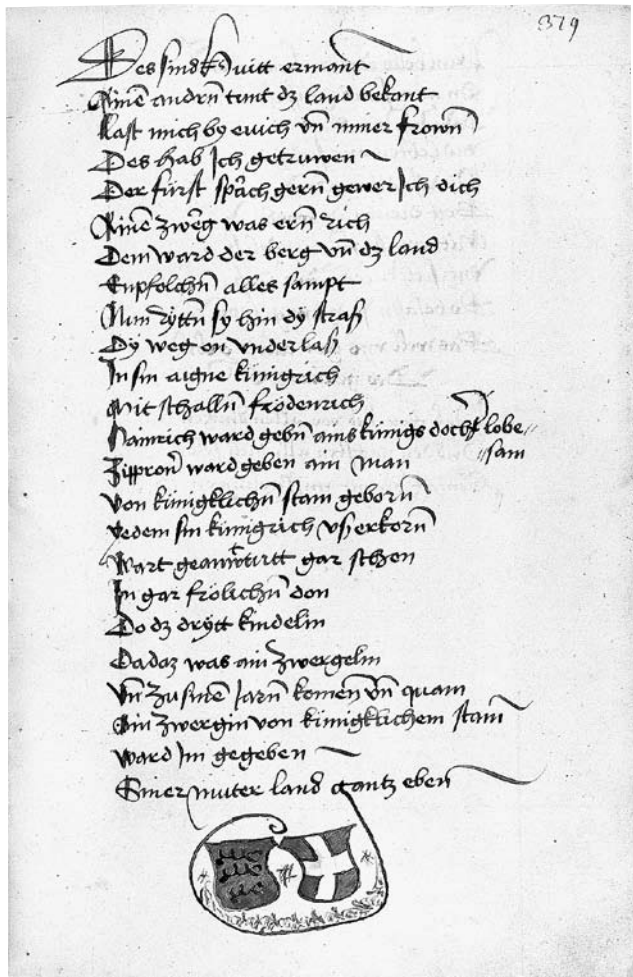 379
Des sind k Quitt ermant
Ainē andrn tunt dz land bekant
Last mich by euich vn̄ miner frown̄
Des hab Ich getruwen
Der fürst sprach gern̄ gewer Ich dich
Ainē zwerg was ern̄ rich
Dem ward der berg vn̄ dz land
Enpfolchn̄ alles sampt
Nun rÿttn̄ sy hin dÿ straß
Dÿ weg on vnderlaß
In sin aigne künigrich
Mit schalln̄ frödenrich
Hainrich ward gebn̄ ains künigs docht lobe//
//sam
Zippron̄ ward geben ain man
von künigklichn̄ stam geborn̄
yedem sin künigrich vßerkorn̄
Wart geantwurtt gar schon
In gar frölichn̄ don
Do dz drÿtt kindelin
Da daz was ain zwergelin
Vn̄ zu sinen Jarn̄ komen vn̄ quam
Ain zwergin von künigklichem stam̄
ward Im gegeben
Siner muter land gantz eben